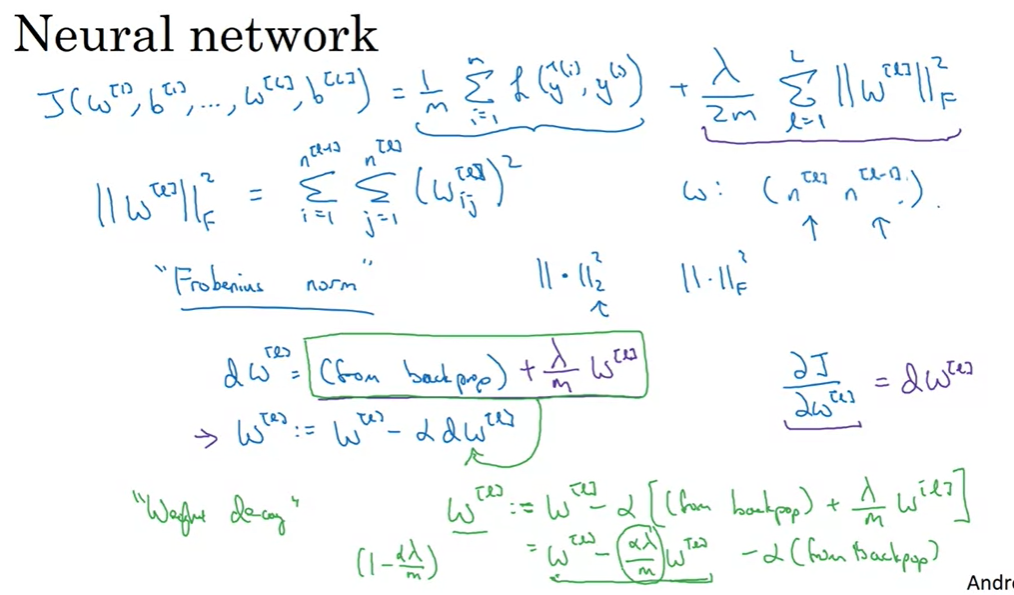 Neural network
J(w^[1], b^[1], ..., w^[L], b^[L]) = 1/m ∑_{i=1}^{n} L(ŷ^(i), y^(i)) + λ/2m ∑_{l=1}^{L} ||w^[l]||²_F
||w^[l]||²_F = ∑_{i=1}^{n^[l-1]} ∑_{j=1}^{n^[l]} (w_{ij}^[l])² w: (n^[l] n^[l-1]).
"Frobenius norm" ||·||²_2 ||·||²_F
dw^[l] = (from backprop) + λ/m w^[l] ∂J/∂w^[l] = dw^[l]
→ w^[l] := w^[l] - α dw^[l]
"Weight decay" w^[l] := w^[l] - α [(from backpop) + λ/m w^[l]]
(1 - αλ/m) = w^[l] - αλ/m w^[l] - α (from backpop)
Andre